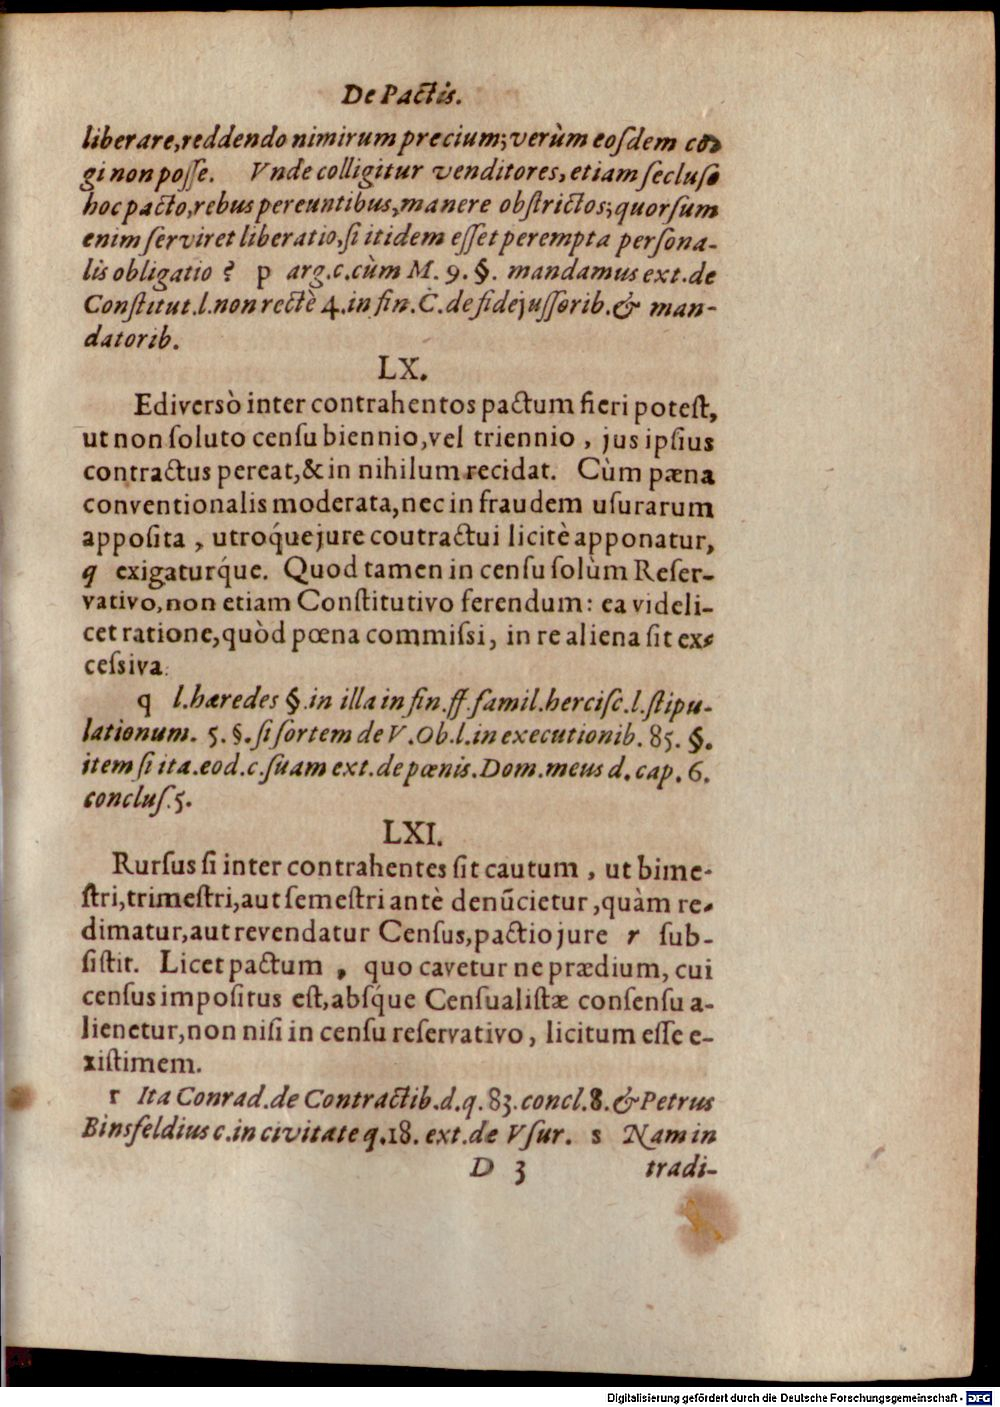 De Pactis.
liberare,reddendo nimirum precium;verùm eosdem cō-
gi non posse. Vnde colligitur venditores, etiam secluso
hoc pacto,rebus pereuntibus,manere obstrictos;quorsum
enim serviret liberatio,si itidem esset perempta persona-
lis obligatio ? p arg.c.cùm M. 9. §. mandamus ext.de
Constitut.l.non rectè 4.in fin.C.de fidejussorib.& man-
datorib.
LX.
Ediversò inter contrahentos pactum fieri potest,
ut non soluto censu biennio,vel triennio , jus ipsius
contractus pereat,& in nihilum recidat. Cùm pæna
conventionalis moderata,nec in fraudem usurarum
apposita , utroq́ue jure coutractui licitè apponatur,
q exigaturq́ue. Quod tamen in censu solùm Reser-
vativo,non etiam Constitutivo ferendum: ea videli-
cet ratione,quòd pœna commissi, in re aliena sit ex-
cessiva.
q l.hæredes §.in illa in fin.ff.famil.hercisc.l.stipu-
lationum. 5. §.si sortem de V.Ob.l.in executionib. 85. §.
item si ita.eod.c.suam ext.de pœnis.Dom.meus d. cap. 6.
conclus.5.
LXI.
Rursus si inter contrahentes sit cautum , ut bime-
stri,trimestri,aut semestri antè denūcietur ,quàm re-
dimatur,aut revendatur Census,pactio jure r sub-
sistit. Licet pactum , quo cavetur ne prædium, cui
census impositus est,absq́ue Censualistæ consensu a-
lienetur,non nisi in censu reservativo, licitum esse e-
xistimem.
r Ita Conrad.de Contractib.d.q.83.concl.8.& Petrus
Binsfeldius c.in civitate q.18. ext.de Vsur. s Nam in
D 3 tradi-
Digitalisierung gefördert durch die Deutsche Forschungsgemeinschaft - DFG